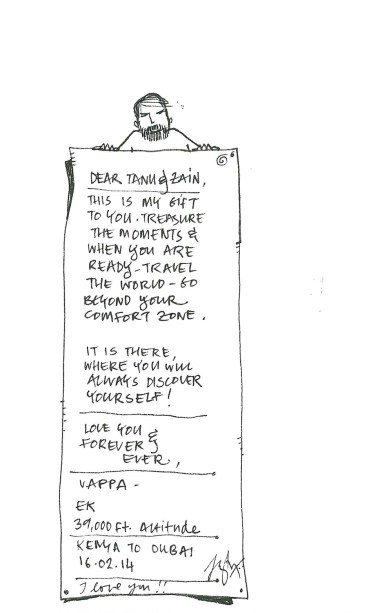 DEAR TANU & ZAIN,
THIS IS MY GIFT
TO YOU. TREASURE
THE MOMENTS &
WHEN YOU ARE
READY - TRAVEL
THE WORLD - GO
BEYOND YOUR
COMFORT ZONE.
IT IS THERE,
WHERE YOU WILL
ALWAYS DISCOVER
YOURSELF!
LOVE YOU
FOREVER &
EVER,
VAPPA -
EK
39,000 ft. Altitude
KENYA TO DUBAI
16.02.14
I love you!!